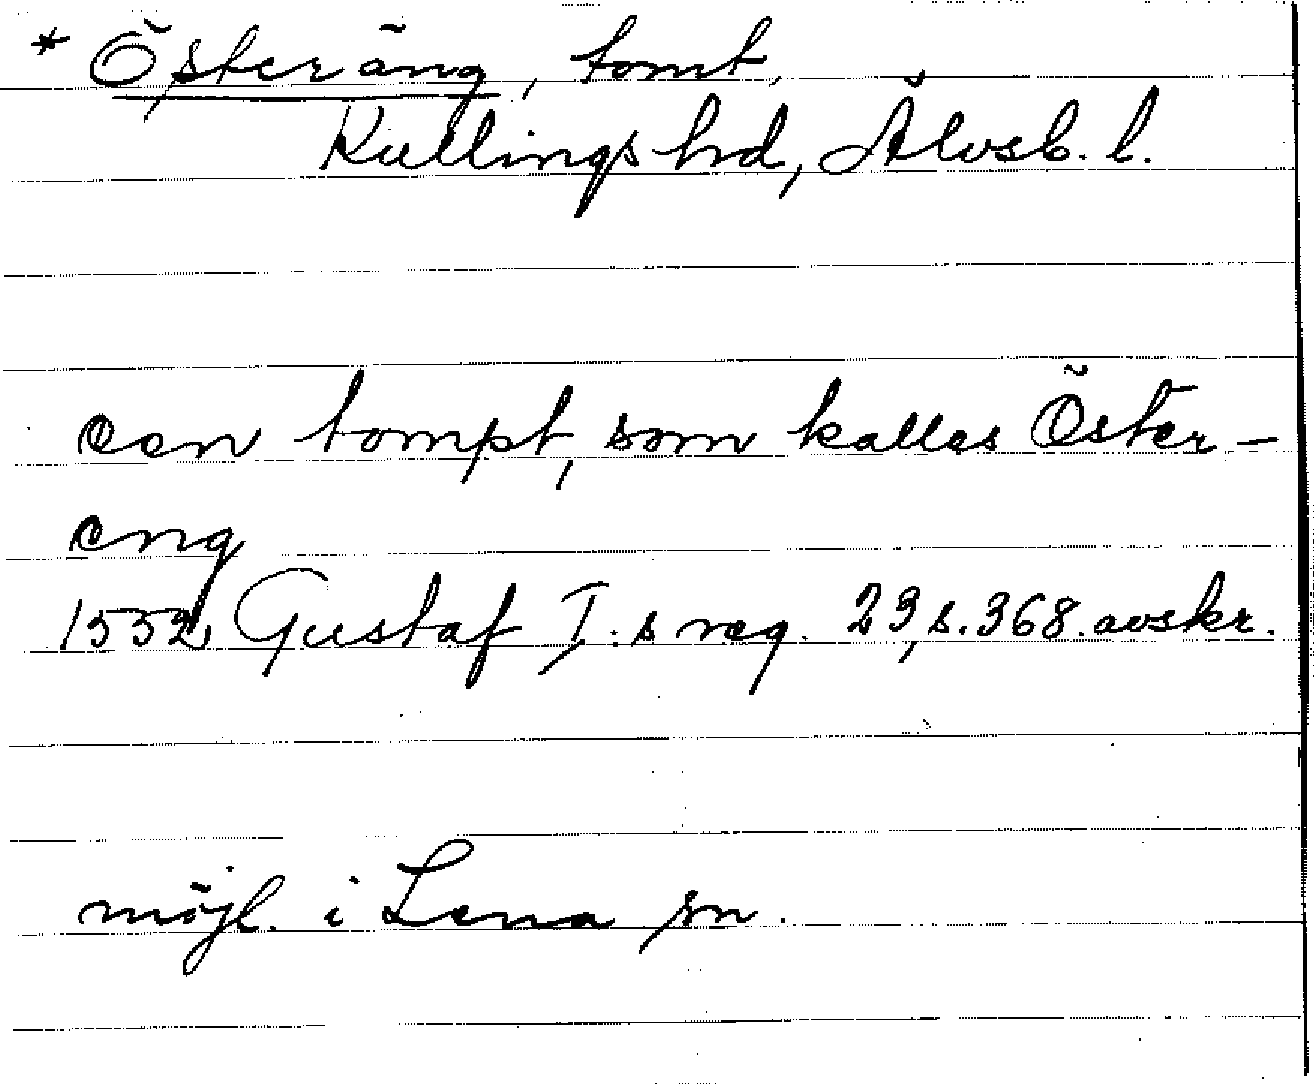 * Österäng, tomt,
Kullings hd, Älvsb. l.
een tompt, som kalles Öster-
eng
1552 Gustaf I:s reg. 23, s. 368. avskr.
möjl. i Lena sn.